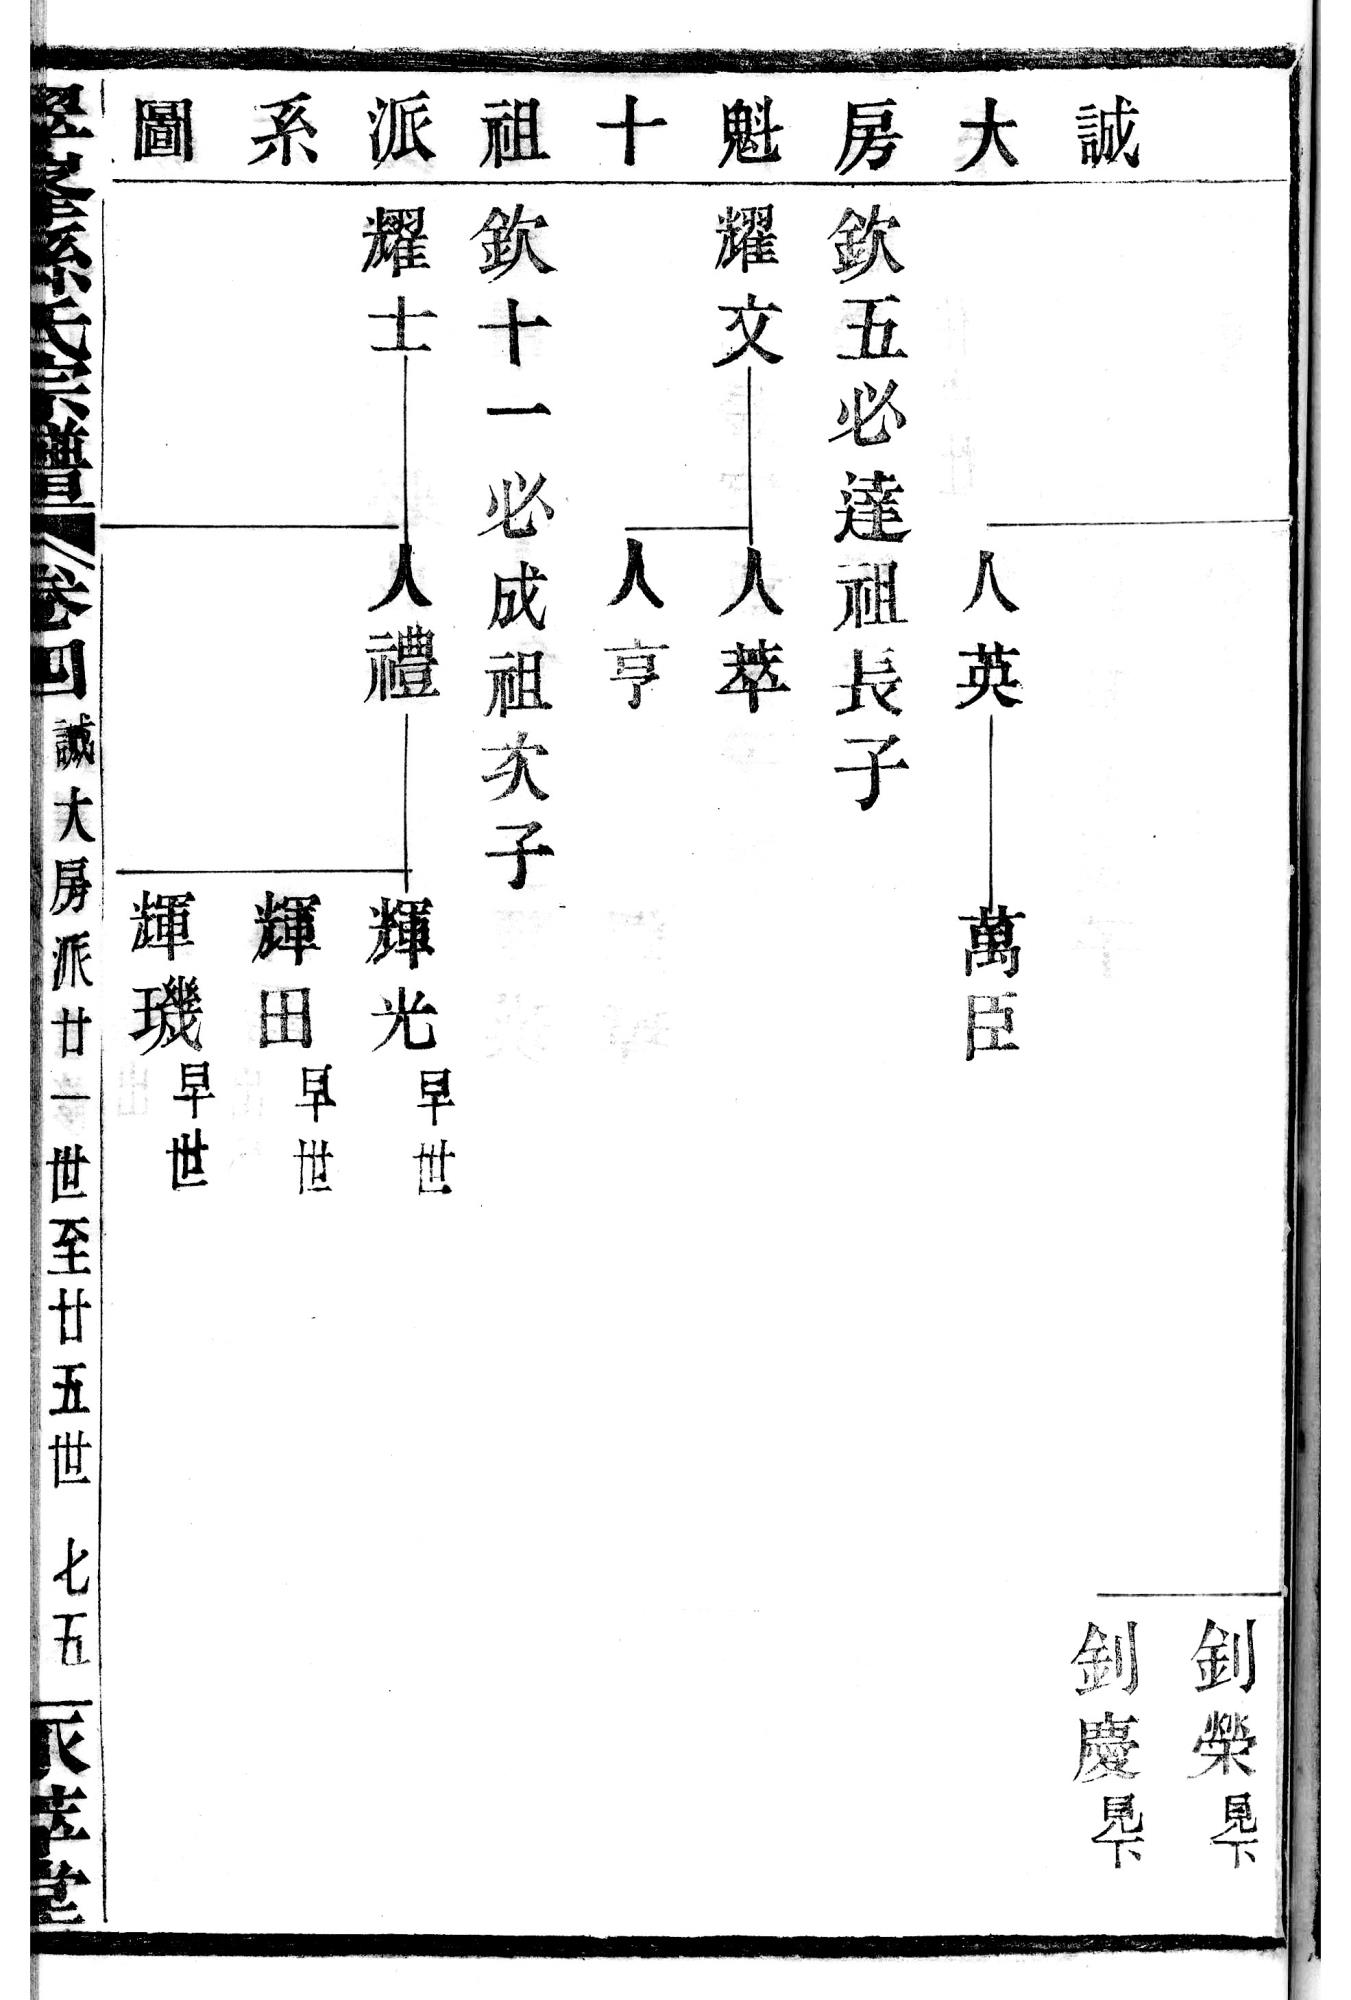 誠大房魁十祖派系圖
釗榮見下
釗慶見下
人英 萬臣
欽五必達祖長子
耀文 人萃
人亨
欽十一必成祖次子
耀士 人禮 輝光早世
輝田早世
輝璣早世
孫氏宗譜 卷四 誠大房派廿一世至廿五世 七五 萃堂